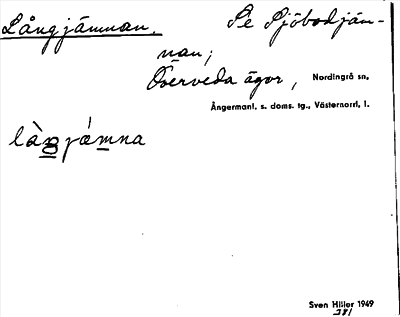 Långjämnan. Se Sjöbodjäm-
nan;
Överveda ägor, Nordingrå sn,
Ångermanl. s. doms. tg., Västernorrl. l.
làŋjǽmna
Sven Hiller 1949